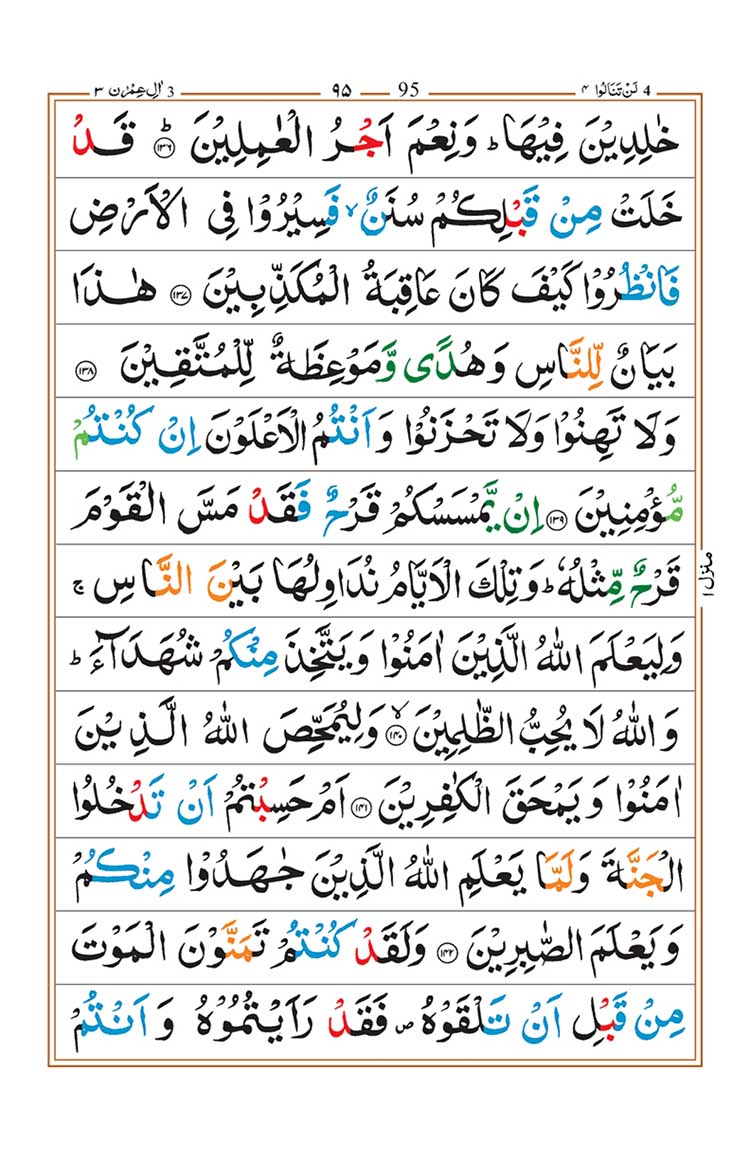 4 لَنْ تَنَالُوا ۴ 95 ۹۵ 3 اٰلِ عِمْرٰن ۳
خٰلِدِيْنَ فِيْهَا ؕ وَنِعْمَ اَجْرُ الْعٰمِلِيْنَ ؕ ﴿۱۳۶﴾ قَدْ
خَلَتْ مِنْ قَبْلِكُمْ سُنَنٌ ۙ فَسِيْرُوْا فِى الْاَرْضِ
فَانْظُرُوْا كَيْفَ كَانَ عَاقِبَةُ الْمُكَذِّبِيْنَ ﴿۱۳۷﴾ هٰذَا
بَيَانٌ لِّلنَّاسِ وَهُدًى وَّمَوْعِظَةٌ لِّلْمُتَّقِيْنَ ﴿۱۳۸﴾
وَلَا تَهِنُوْا وَلَا تَحْزَنُوْا وَاَنْتُمُ الْاَعْلَوْنَ اِنْ كُنْتُمْ
مُّؤْمِنِيْنَ ﴿۱۳۹﴾ اِنْ يَّمْسَسْكُمْ قَرْحٌ فَقَدْ مَسَّ الْقَوْمَ
قَرْحٌ مِّثْلُهٗ ؕ وَتِلْكَ الْاَيَّامُ نُدَاوِلُهَا بَيْنَ النَّاسِ ۚ
وَلِيَعْلَمَ اللّٰهُ الَّذِيْنَ اٰمَنُوْا وَيَتَّخِذَ مِنْكُمْ شُهَدَآءَ ؕ
وَاللّٰهُ لَا يُحِبُّ الظّٰلِمِيْنَ ۙ ﴿۱۴۰﴾ وَلِيُمَحِّصَ اللّٰهُ الَّذِيْنَ
اٰمَنُوْا وَيَمْحَقَ الْكٰفِرِيْنَ ﴿۱۴۱﴾ اَمْ حَسِبْتُمْ اَنْ تَدْخُلُوا
الْجَنَّةَ وَلَمَّا يَعْلَمِ اللّٰهُ الَّذِيْنَ جٰهَدُوْا مِنْكُمْ
وَيَعْلَمَ الصّٰبِرِيْنَ ﴿۱۴۲﴾ وَلَقَدْ كُنْتُمْ تَمَنَّوْنَ الْمَوْتَ
مِنْ قَبْلِ اَنْ تَلْقَوْهُ ۪ فَقَدْ رَاَيْتُمُوْهُ وَاَنْتُمْ
منزل ۱